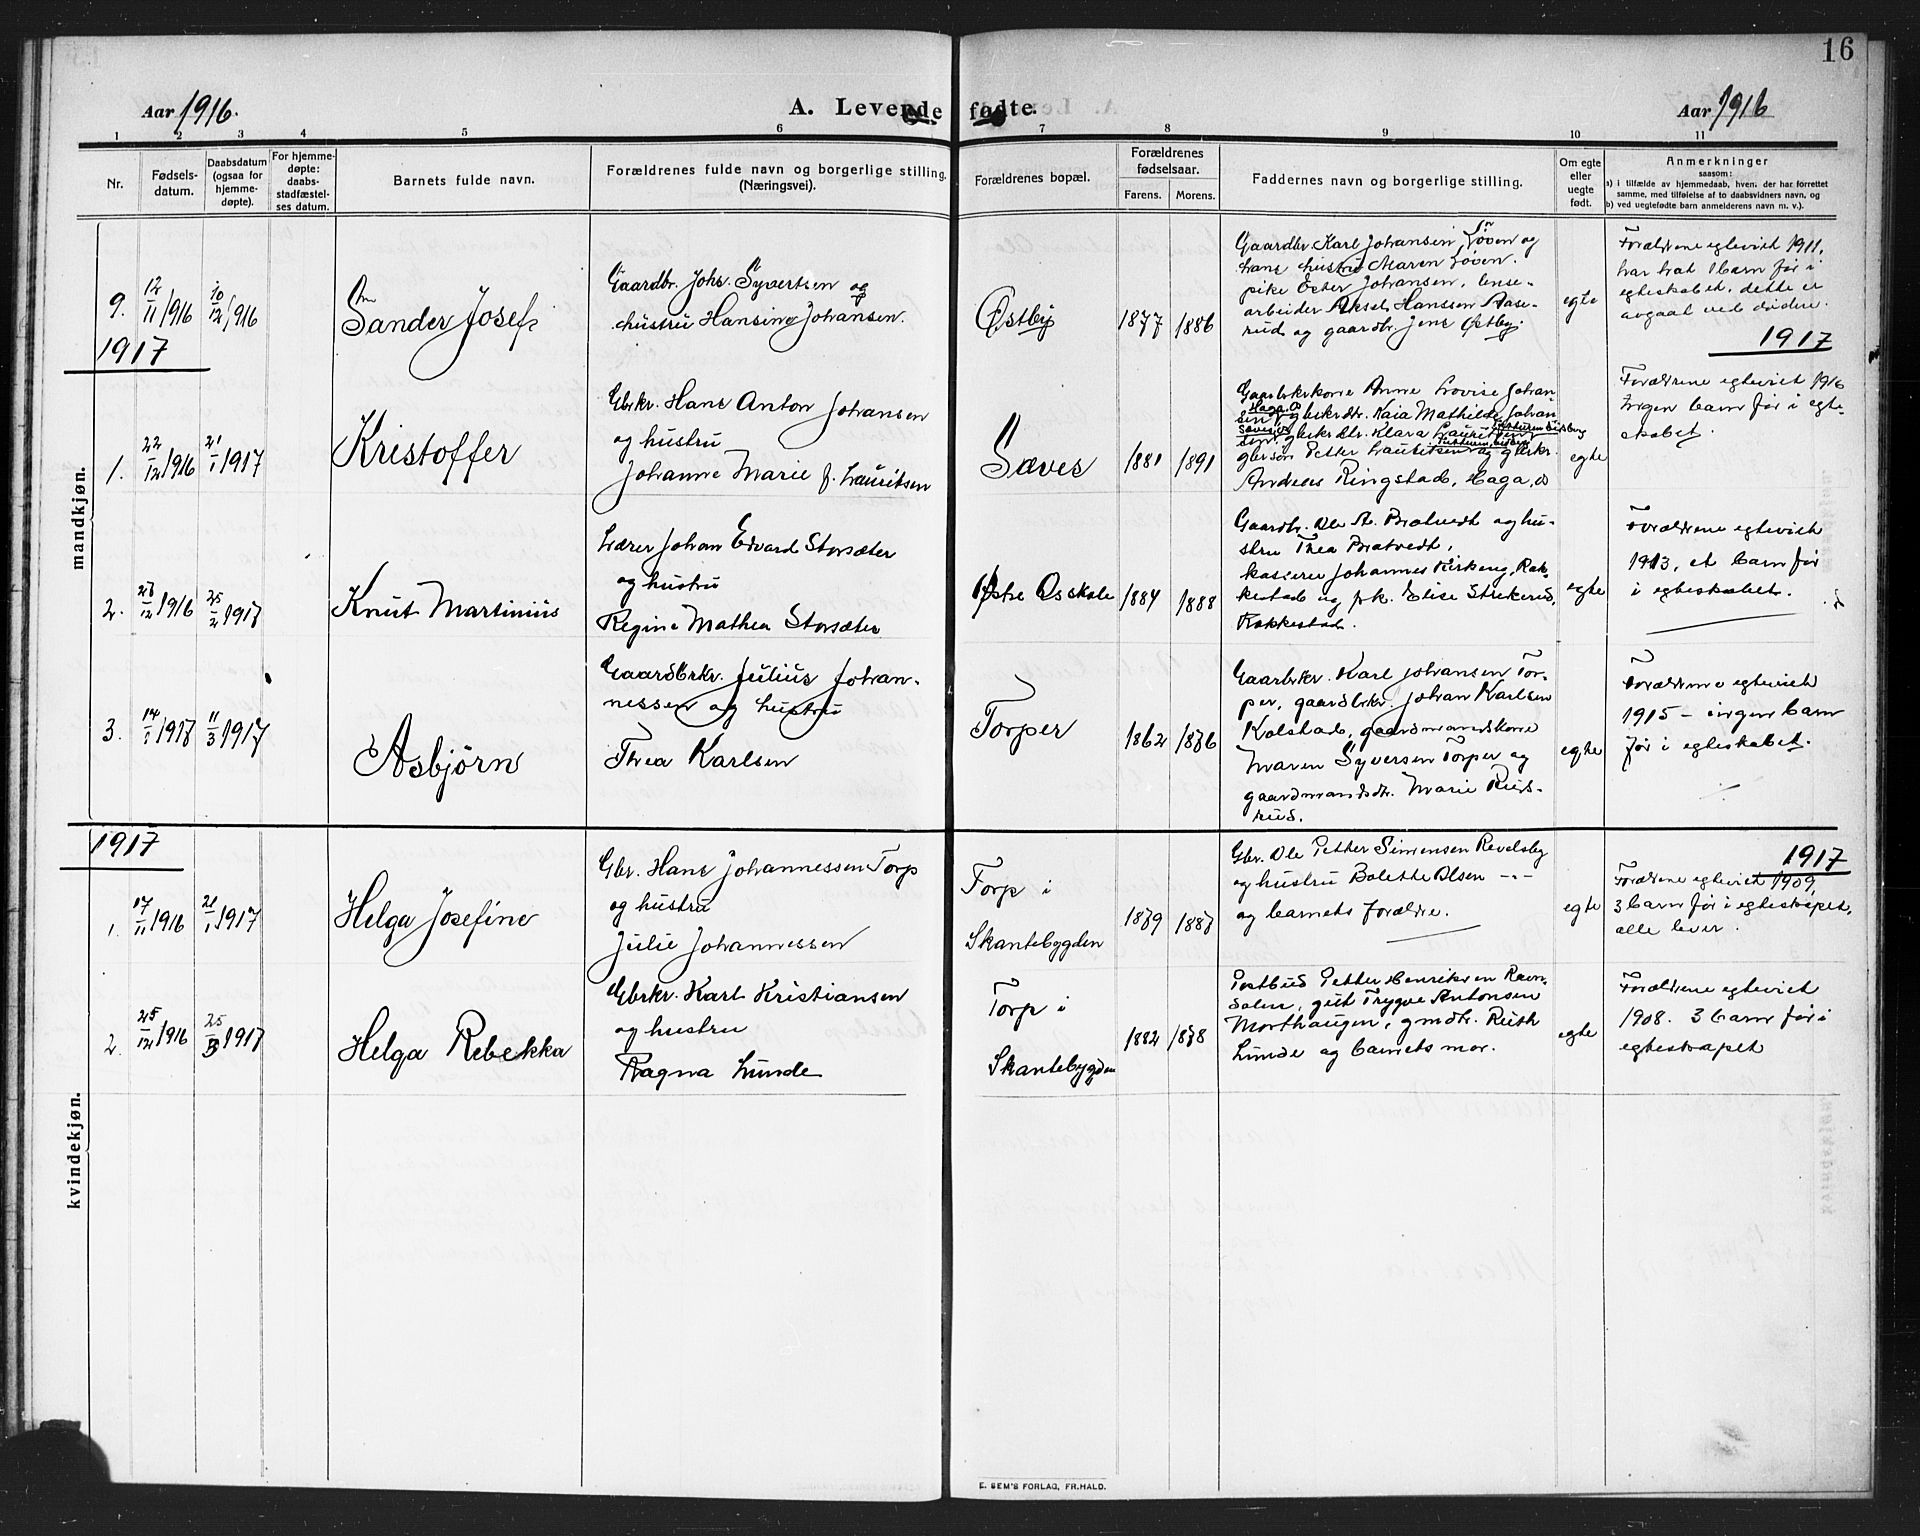 16
Aar 1916.
A. Levende fødte.
Aar 1916
1 2 3 4 5 6 7 8 9 10 11
Nr.
Fødsels-
datum.
Daabsdatum
(ogsaa for
hjemme-
døpte).
For hjemme-
døpte:
daabs-
stadfæstel-
ses datum.
Barnets fulde navn.
Forældrenes fulde navn og borgerlige stilling.
(Næringsvei).
Forældrenes bopæl.
Forældrenes
fødselsaar.
Farens.
Morens.
Faddernes navn og borgerlige stilling.
Om egte
eller
uegte
født.
Anmerkninger
saasom:
a) i tilfælde av hjemmedaab, hven: der har forrettet
samme, med tilføielse af to daabsvidners navn, og
b) ved uegtefødte barn anmelderens navn m. v.).
mandkjøn.
9.
12/11 1916
10/12 1916
Sander Josef
Gaardbr. Johs. Syvertsen og
hustru Hansine Johansen.
Østby
1877
1886
Gaardbr. Karl Johansen, Løven og
hans hustru Maren Løven.
pike Ester Johansen, lense-
arbeider Aksel Hanssen Aase-
rud og gaardbr. Jens Østby.
egte
Forældrene egteviet 1911,
har hat 1 barn før i
egteskabet, dette er
avgaat ved døden.
1917
1917
1.
22/12 1916
21/1 1917
Kristoffer
Gbrkr. Hans Anton Johansen
og hustru
Johanne Marie f. Lauritsen
Sæves
1881
1891
Gaarbrkrkone Anne Lovise Johan-
sen, gbrkrdtr. Kaia Mathilde Johan-
sen, gbrkrdtr. Klara Lauritsen
gbrsøn Petter Lauritsen og gbrkr.
Andreas Ringstad, Haga, Ø
egte
Forældrene egteviet 1916
Ingen barn før i egte-
skabet.
2.
28/12 1916
25/2 1917
Knut Martinius
Lærer Johan Edvard Storsæter
og hustru
Regine Mathea Storsæter
Østre Os skole
1884
1888
Gaardbr. Ole A. Bratvedt og hu-
stru Thea Bratvedt,
kasserer Johannes Kirkeng, Rak-
kestad og frk. Elise Strikerud,
Rakkestad.
egte
Forældrene egteviet
1913, et barn før
i egteskabet.
3.
14/1 1917
11/3 1917
Asbjørn
Gaardbrkr. Julius Johan-
nessen og hustru
Thea Karlsen
Torper
1862
1876
Gaarbrkr. Karl Johansen Tor-
per, gaardbrkr. Johan Karlsen
Kolstad, gaardmandskone
Maren Syversen Torper og
gaardmandsdtr. Marie Ruds-
rud.
egte
Forældrene egteviet
1915 – ingen barn
før i egteskabet.
kvindekjøn.
1917
1917
1.
17/11 1916
21/1 1917
Helga Josefine
Gbr. Hans Johannessen Torp
og hustru
Julie Johannessen
Torp i
Skantebygden
1879
1887
Gbr. Ole Petter Simensen Revelsby
og hustru Bolette Olsen -"-
og barnets forældre.
egte
Forældrene egteviet 1909,
3 barn før i egteskapet,
alle lever.
2.
25/12 1916
25/3 1917
Helga Rebekka
Gbrkr. Karl Kristiansen
og hustru
Ragna Lunde
Torp i
Skantebygden
1882
1878
Postbud Petter Henriksen Ravn-
dalen, gut Trygve Antonsen
Morthaugen, gmdtr. Ruth
Lunde og barnets mor.
egte
Forældrene egteviet
1908. 3 barn før i
egteskapet
E. SEM'S FORLAG, FR.HALD.